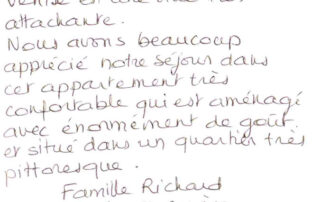 attachante.
Nous avons beaucoup
apprécié notre séjour dans
cet appartement très
confortable qui est aménagé
avec énormément de goût
et situé dans un quartier très
pittoresque.
Famille Richard